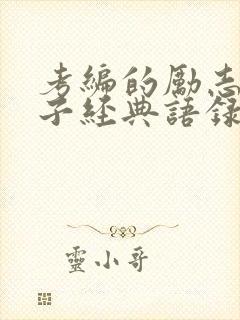 考編的勵志
子經典語錄
靈小哥